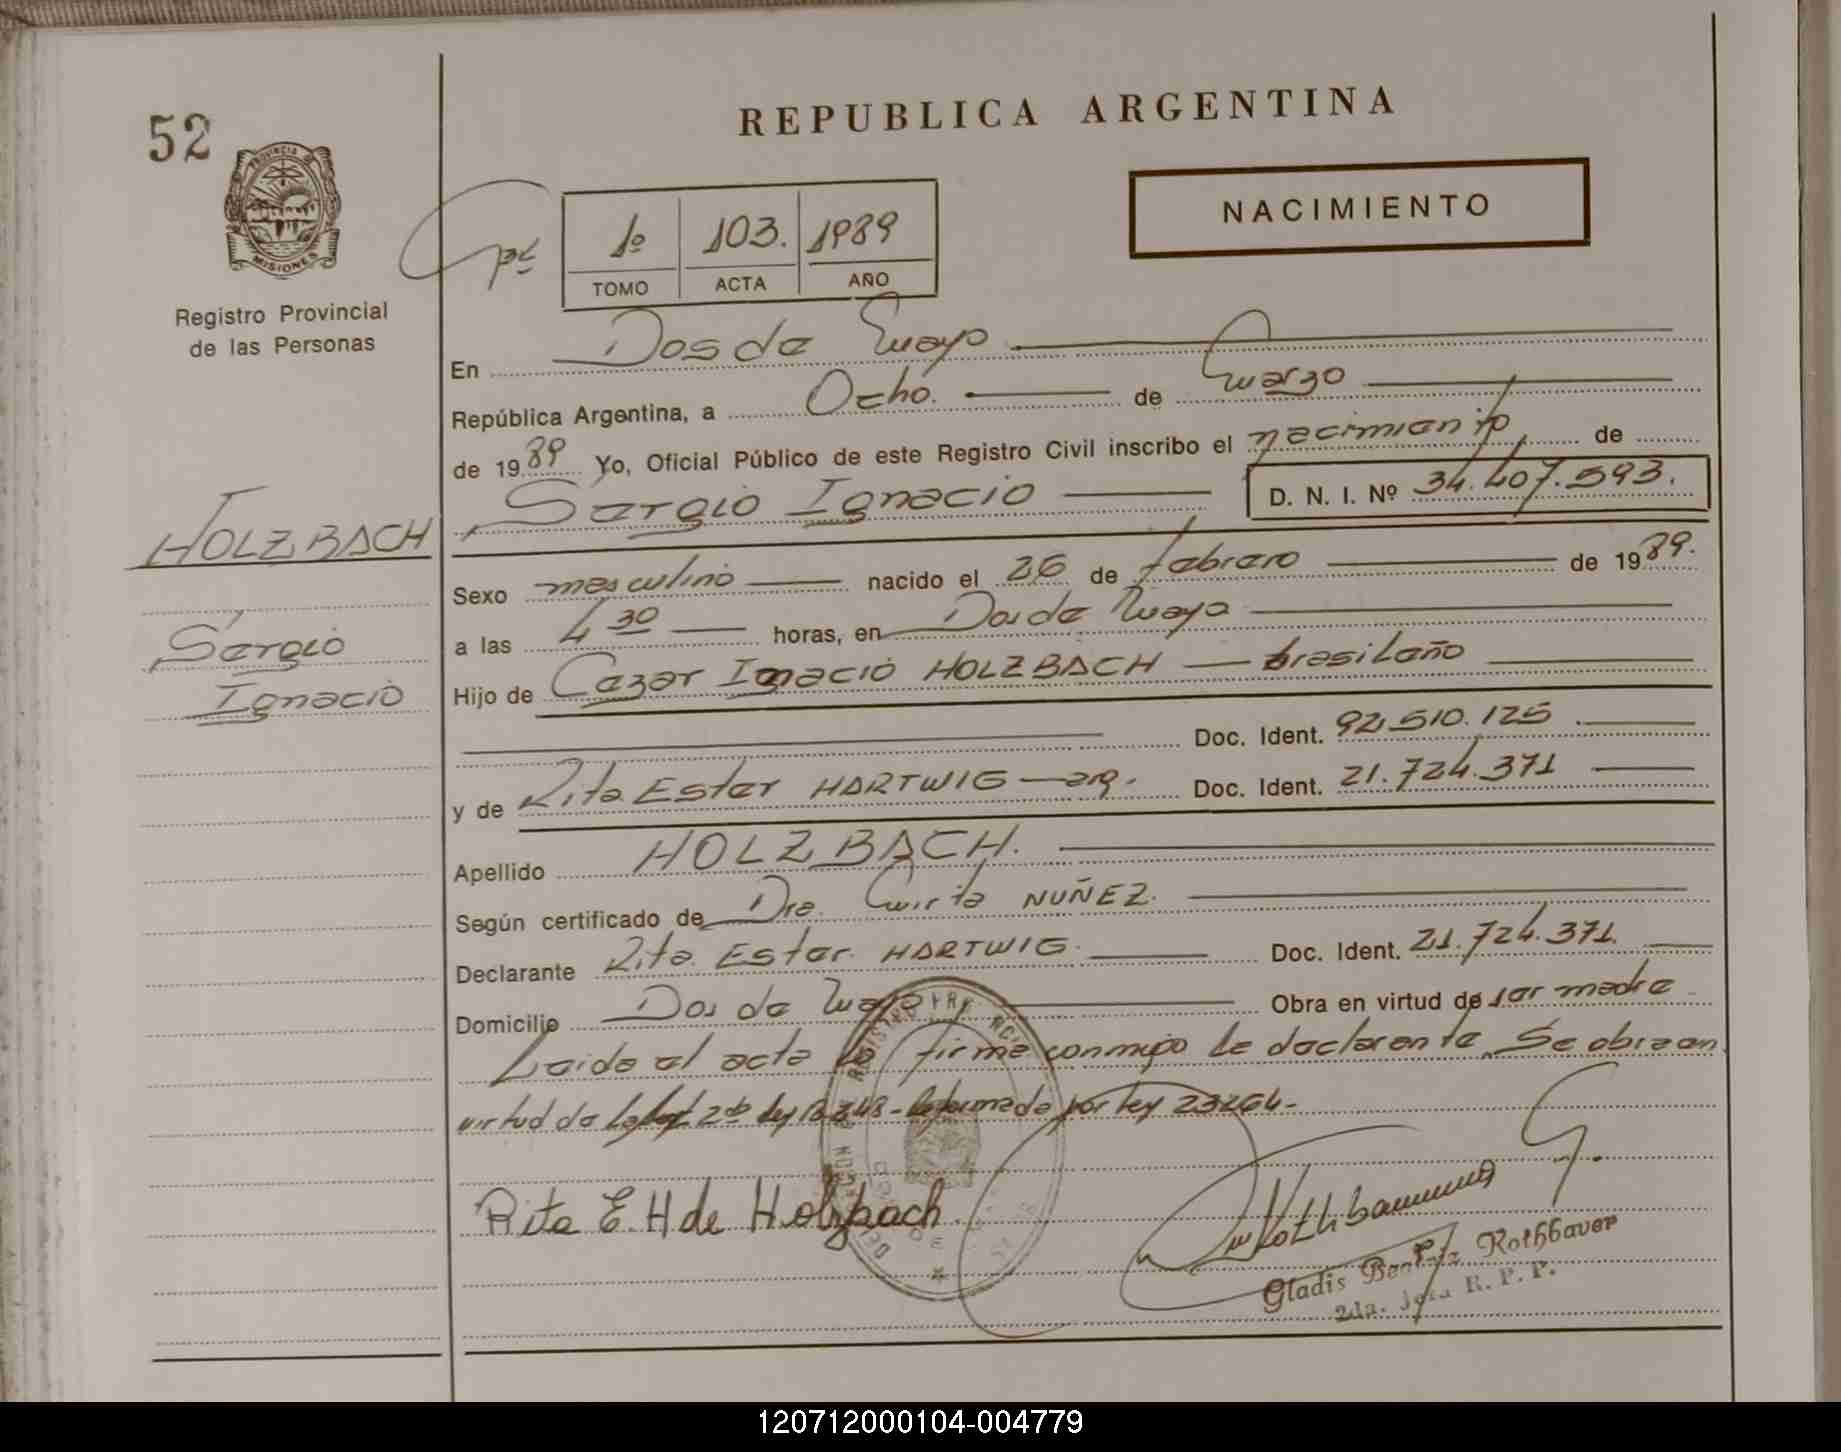 REPUBLICA ARGENTINA
52
PROVINCIA D
MISIONES
NACIMIENTO
1º 103. 1989
TOMO ACTA AÑO
Registro Provincial
de las Personas
En Dos de Mayo
República Argentina, a Ocho. de Marzo
de 1989 Yo, Oficial Público de este Registro Civil inscribo el nacimiento de
Sergio Ignacio D. N. I. Nº 34.407.593.
HOLZBACH
Sergio
Ignacio
Sexo masculino nacido el 26 de febrero de 1989.
a las 4 30 horas, en Dos de Mayo
Hijo de Cezar Ignacio HOLZBACH — brasileño
Doc. Ident. 92.510.125
y de Rita Ester HARTWIG — arg. Doc. Ident. 21.724.371
Apellido HOLZBACH.
Según certificado de Dra. Mirta NUÑEZ.
Declarante Rita Ester HARTWIG Doc. Ident. 21.724.371
Domicilio Dos de Mayo Obra en virtud de ser madre
Leida el acta la firma conmigo la declarante. Se obra en
virtud de 2do ley 18.248 - Reformada por ley 23264-
Rita E. H de Holzbach
Gladis Beatriz Rothbaver
2da. Jefa R. P. P.
120712000104-004779